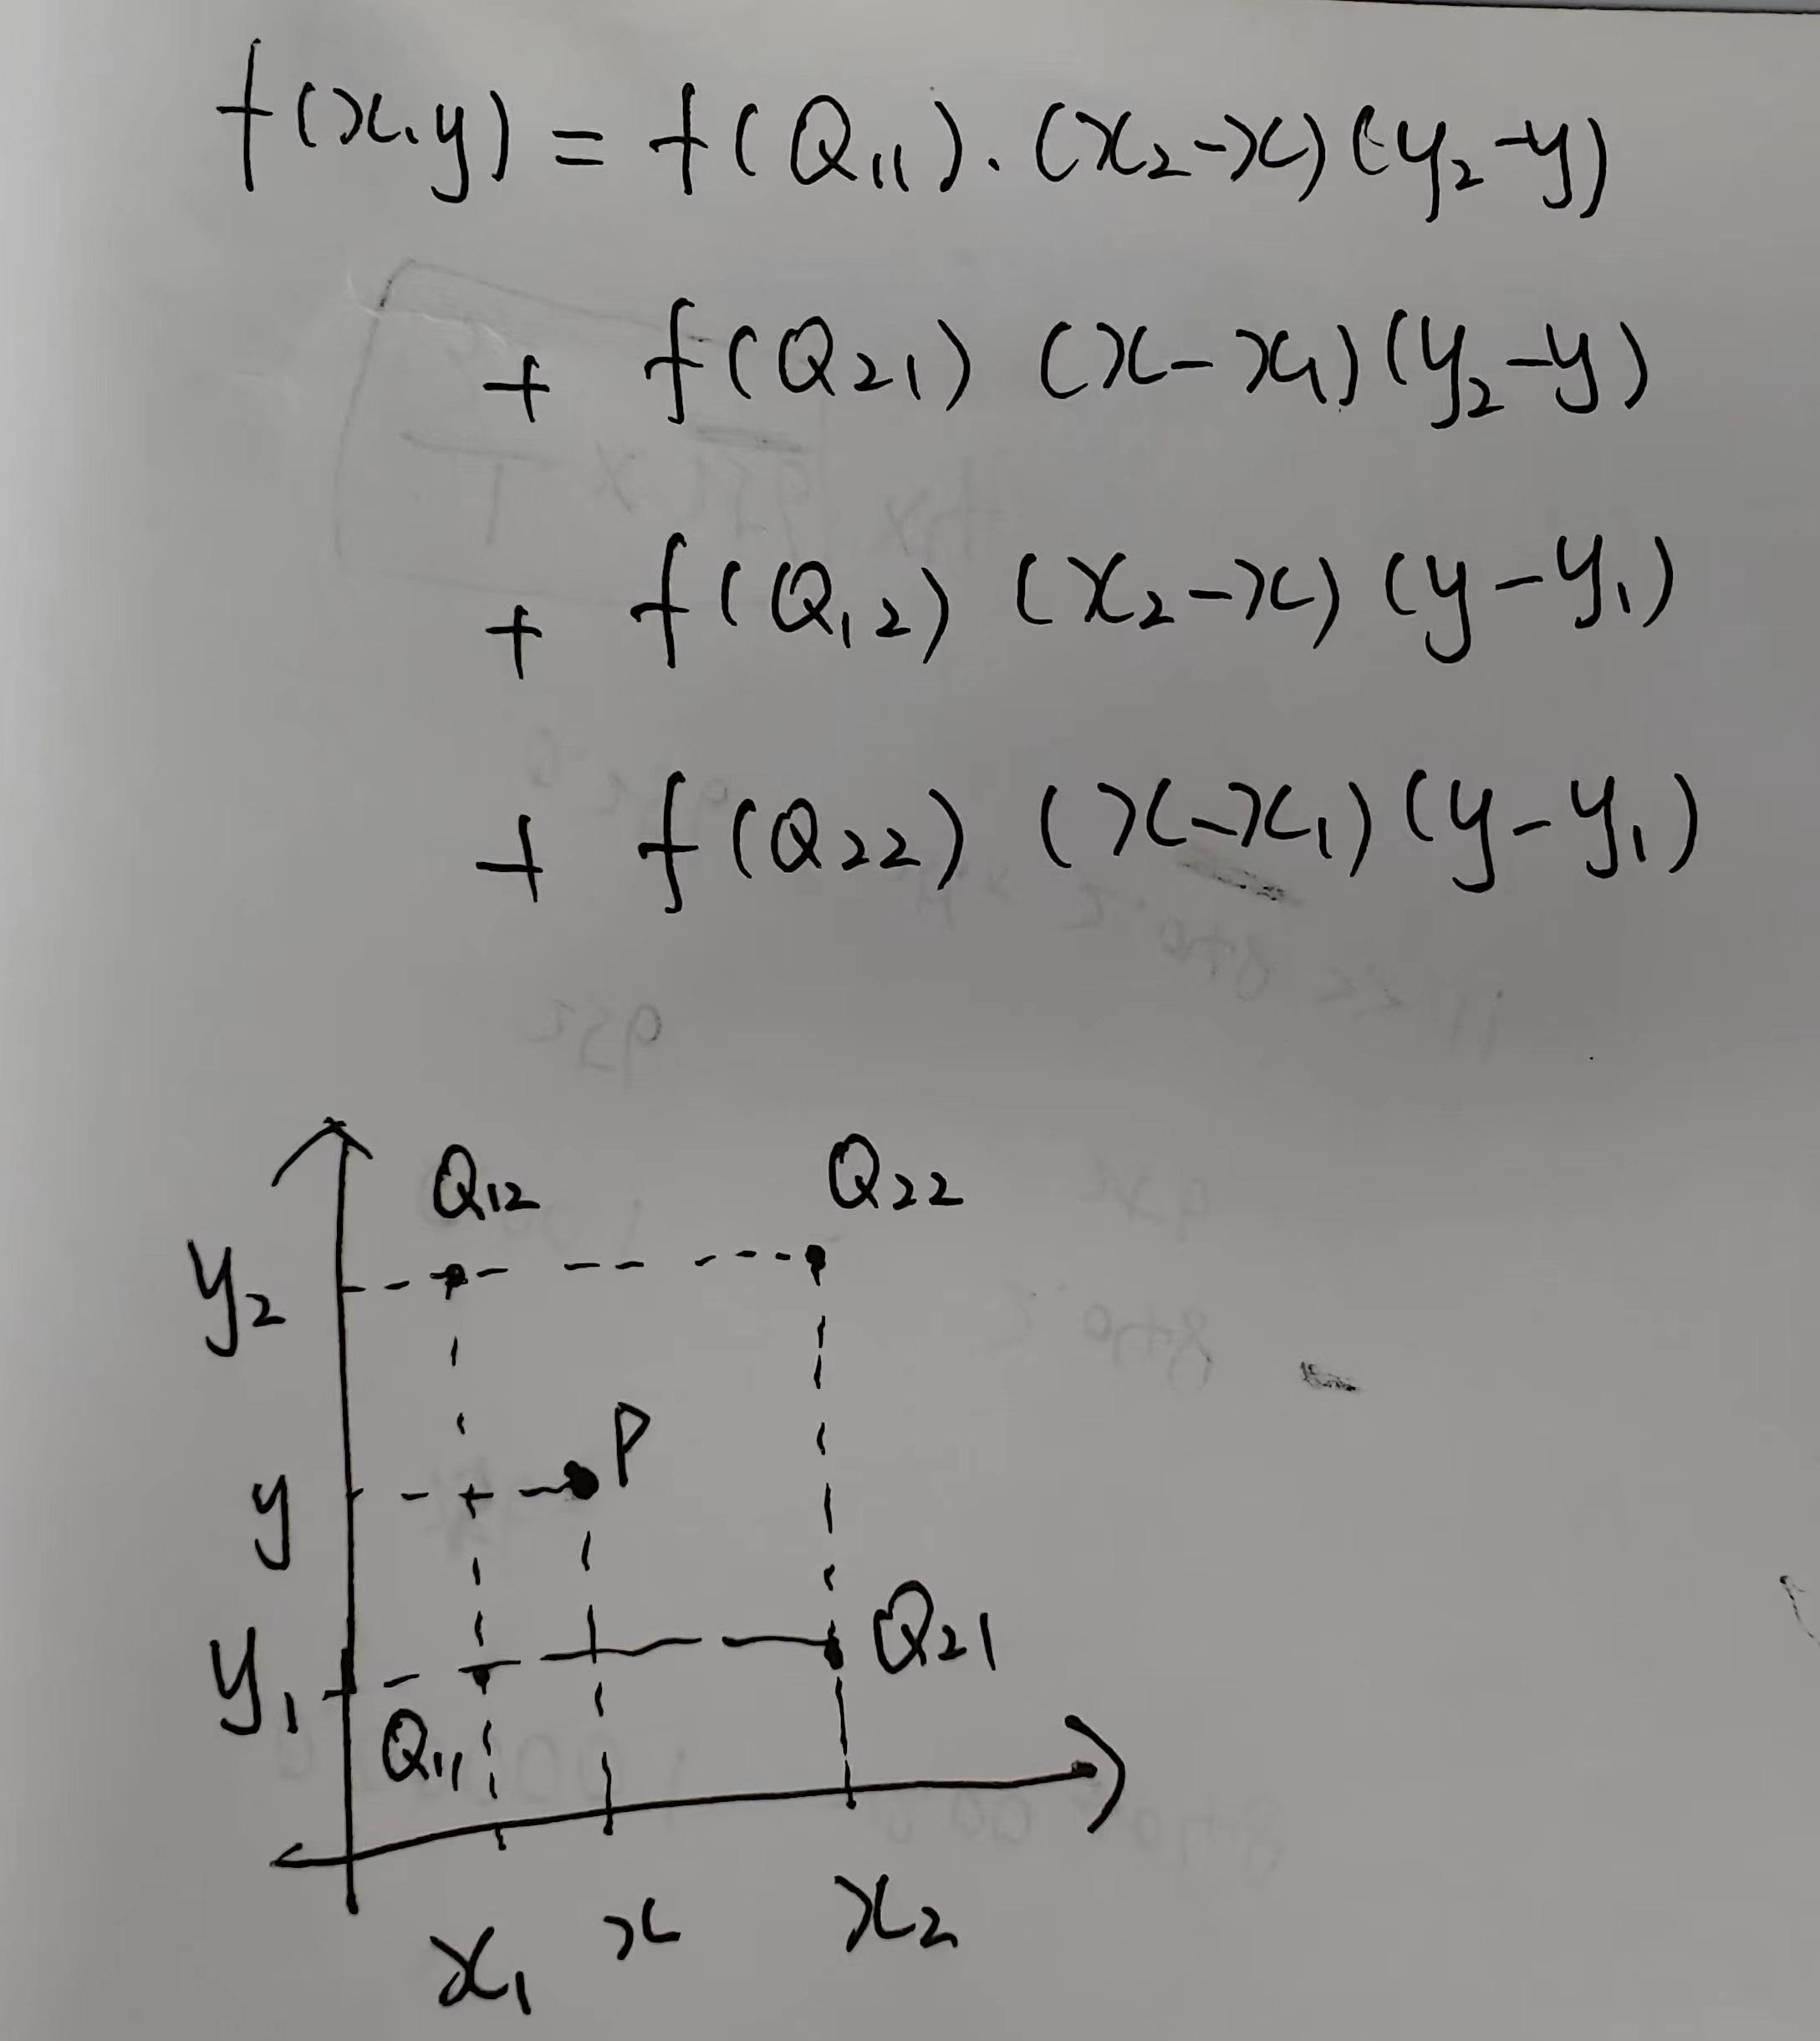 f(x,y) = f(Q₁₁)·(x₂-x)(y₂-y)
+ f(Q₂₁) (x-x₁)(y₂-y)
+ f(Q₁₂) (x₂-x)(y-y₁)
+ f(Q₂₂) (x-x₁)(y-y₁)
Q₁₂ Q₂₂
y₂
P
y
Q₂₁
y₁
Q₁₁
x₁ x x₂